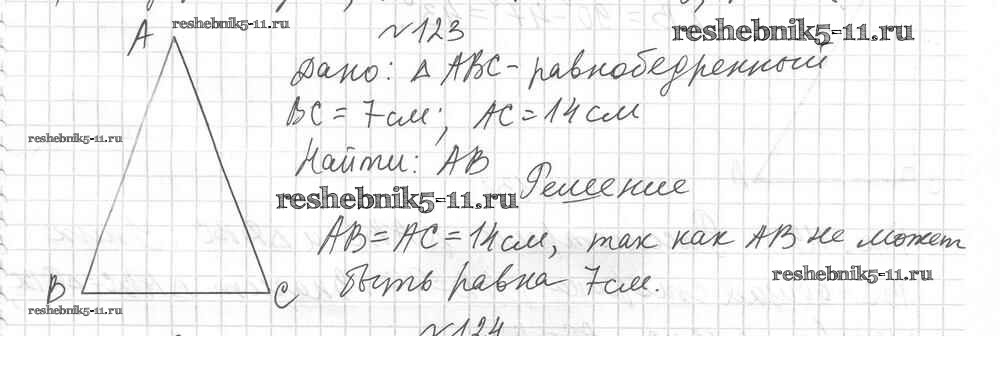 reshebnik5-11.ru
№123
reshebnik5-11.ru
A
Дано: Δ ABC - равнобедренный
BC = 7см; AC = 14 см
reshebnik5-11.ru
Найти: AB
reshebnik5-11.ru
Решение
AB = AC = 14 см, так как AB не может
быть равна 7см.
reshebnik5-11.ru
B
C
reshebnik5-11.ru
№124